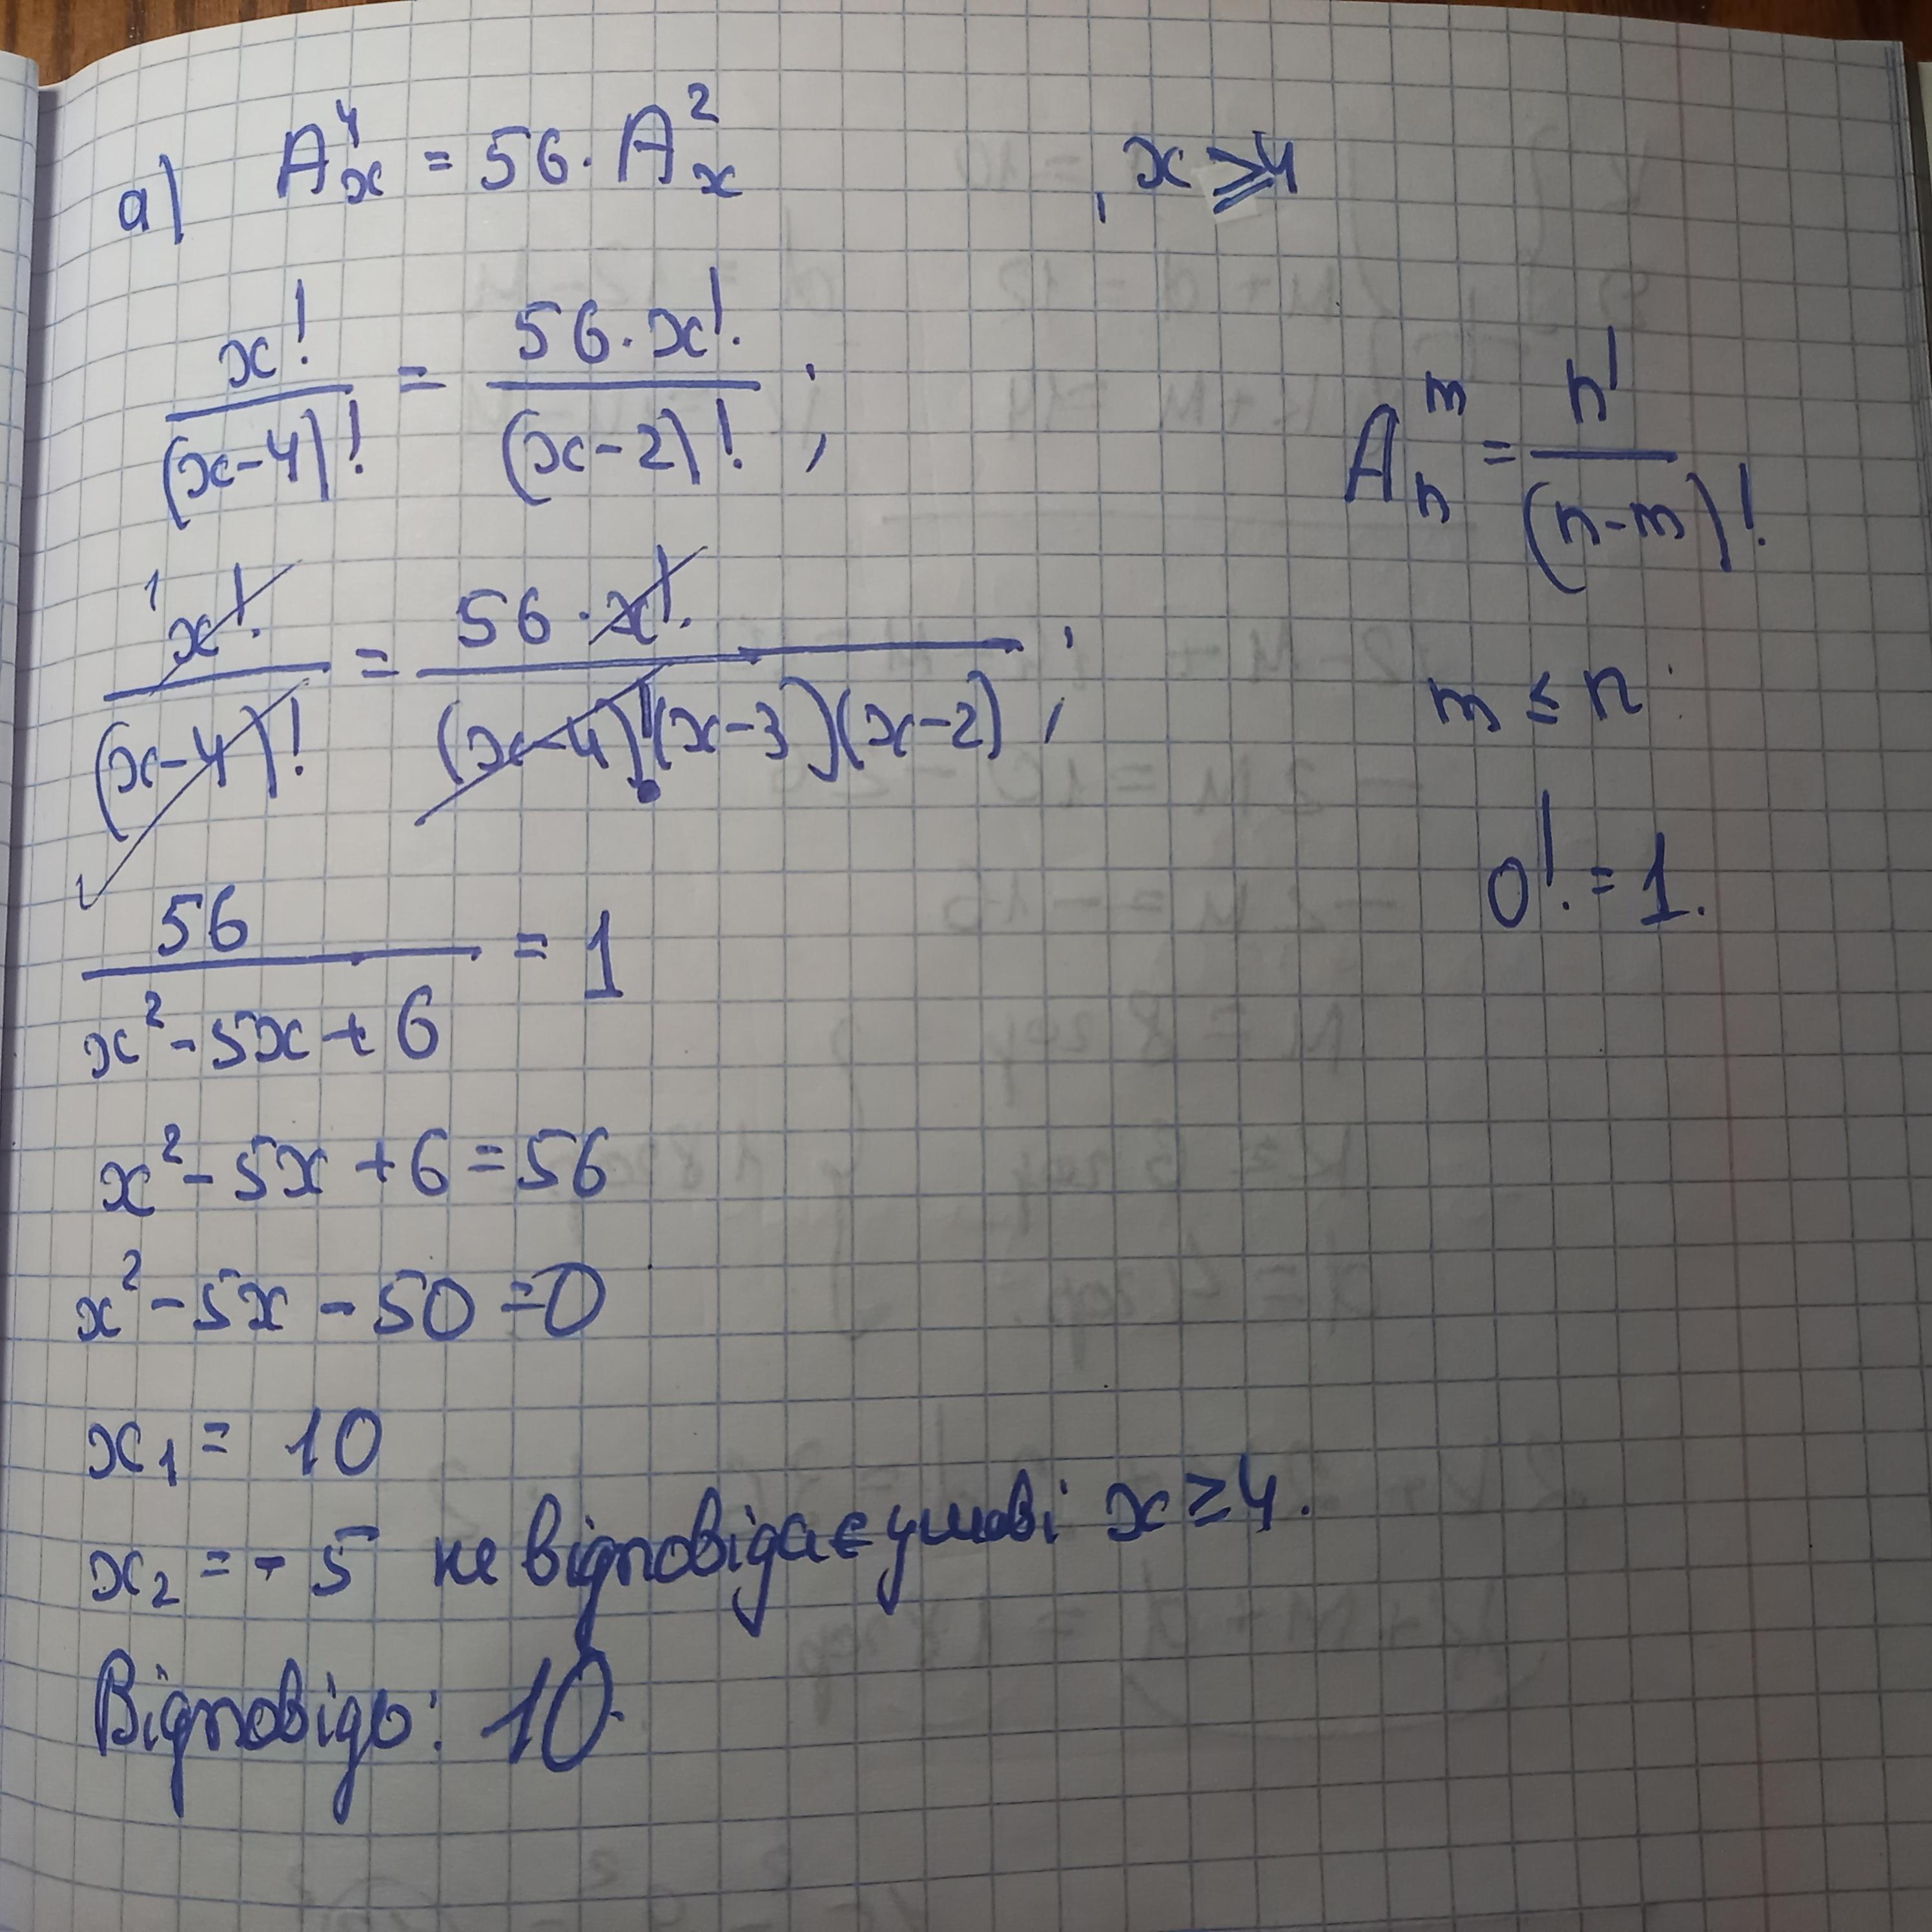 а) A⁴ₓ = 56 · A²ₓ , x ⩾ 4
x! / (x-4)! = 56 · x! / (x-2)! ;
Aₙᵐ = n! / (n-m)!
x! / (x-4)! = 56 · x! / (x-4)!(x-3)(x-2) ;
m ≤ n
0! = 1.
56 / x² - 5x + 6 = 1
x² - 5x + 6 = 56
x² - 5x - 50 = 0
x₁ = 10
x₂ = - 5 не відповідає умові x ≥ 4.
Відповідь: 10.